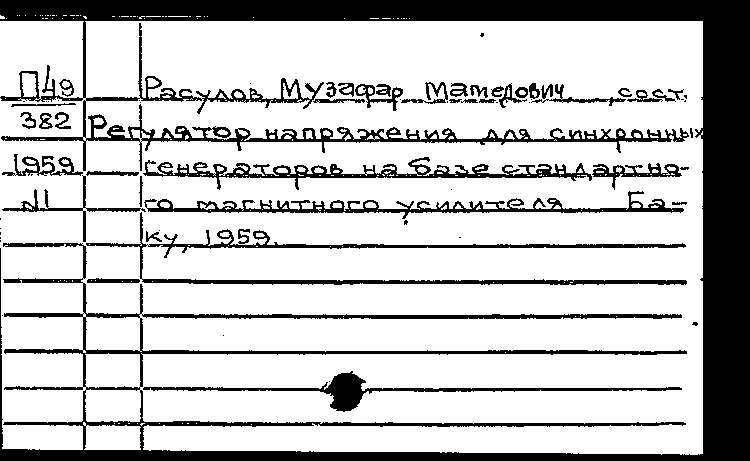 П49 Расулов, Музафар Мамедович, сост.
382 Регулятор напряжения для синхронных
1959 генераторов на базе стандартно-
го магнитного усилителя Ба-
ку, 1959.